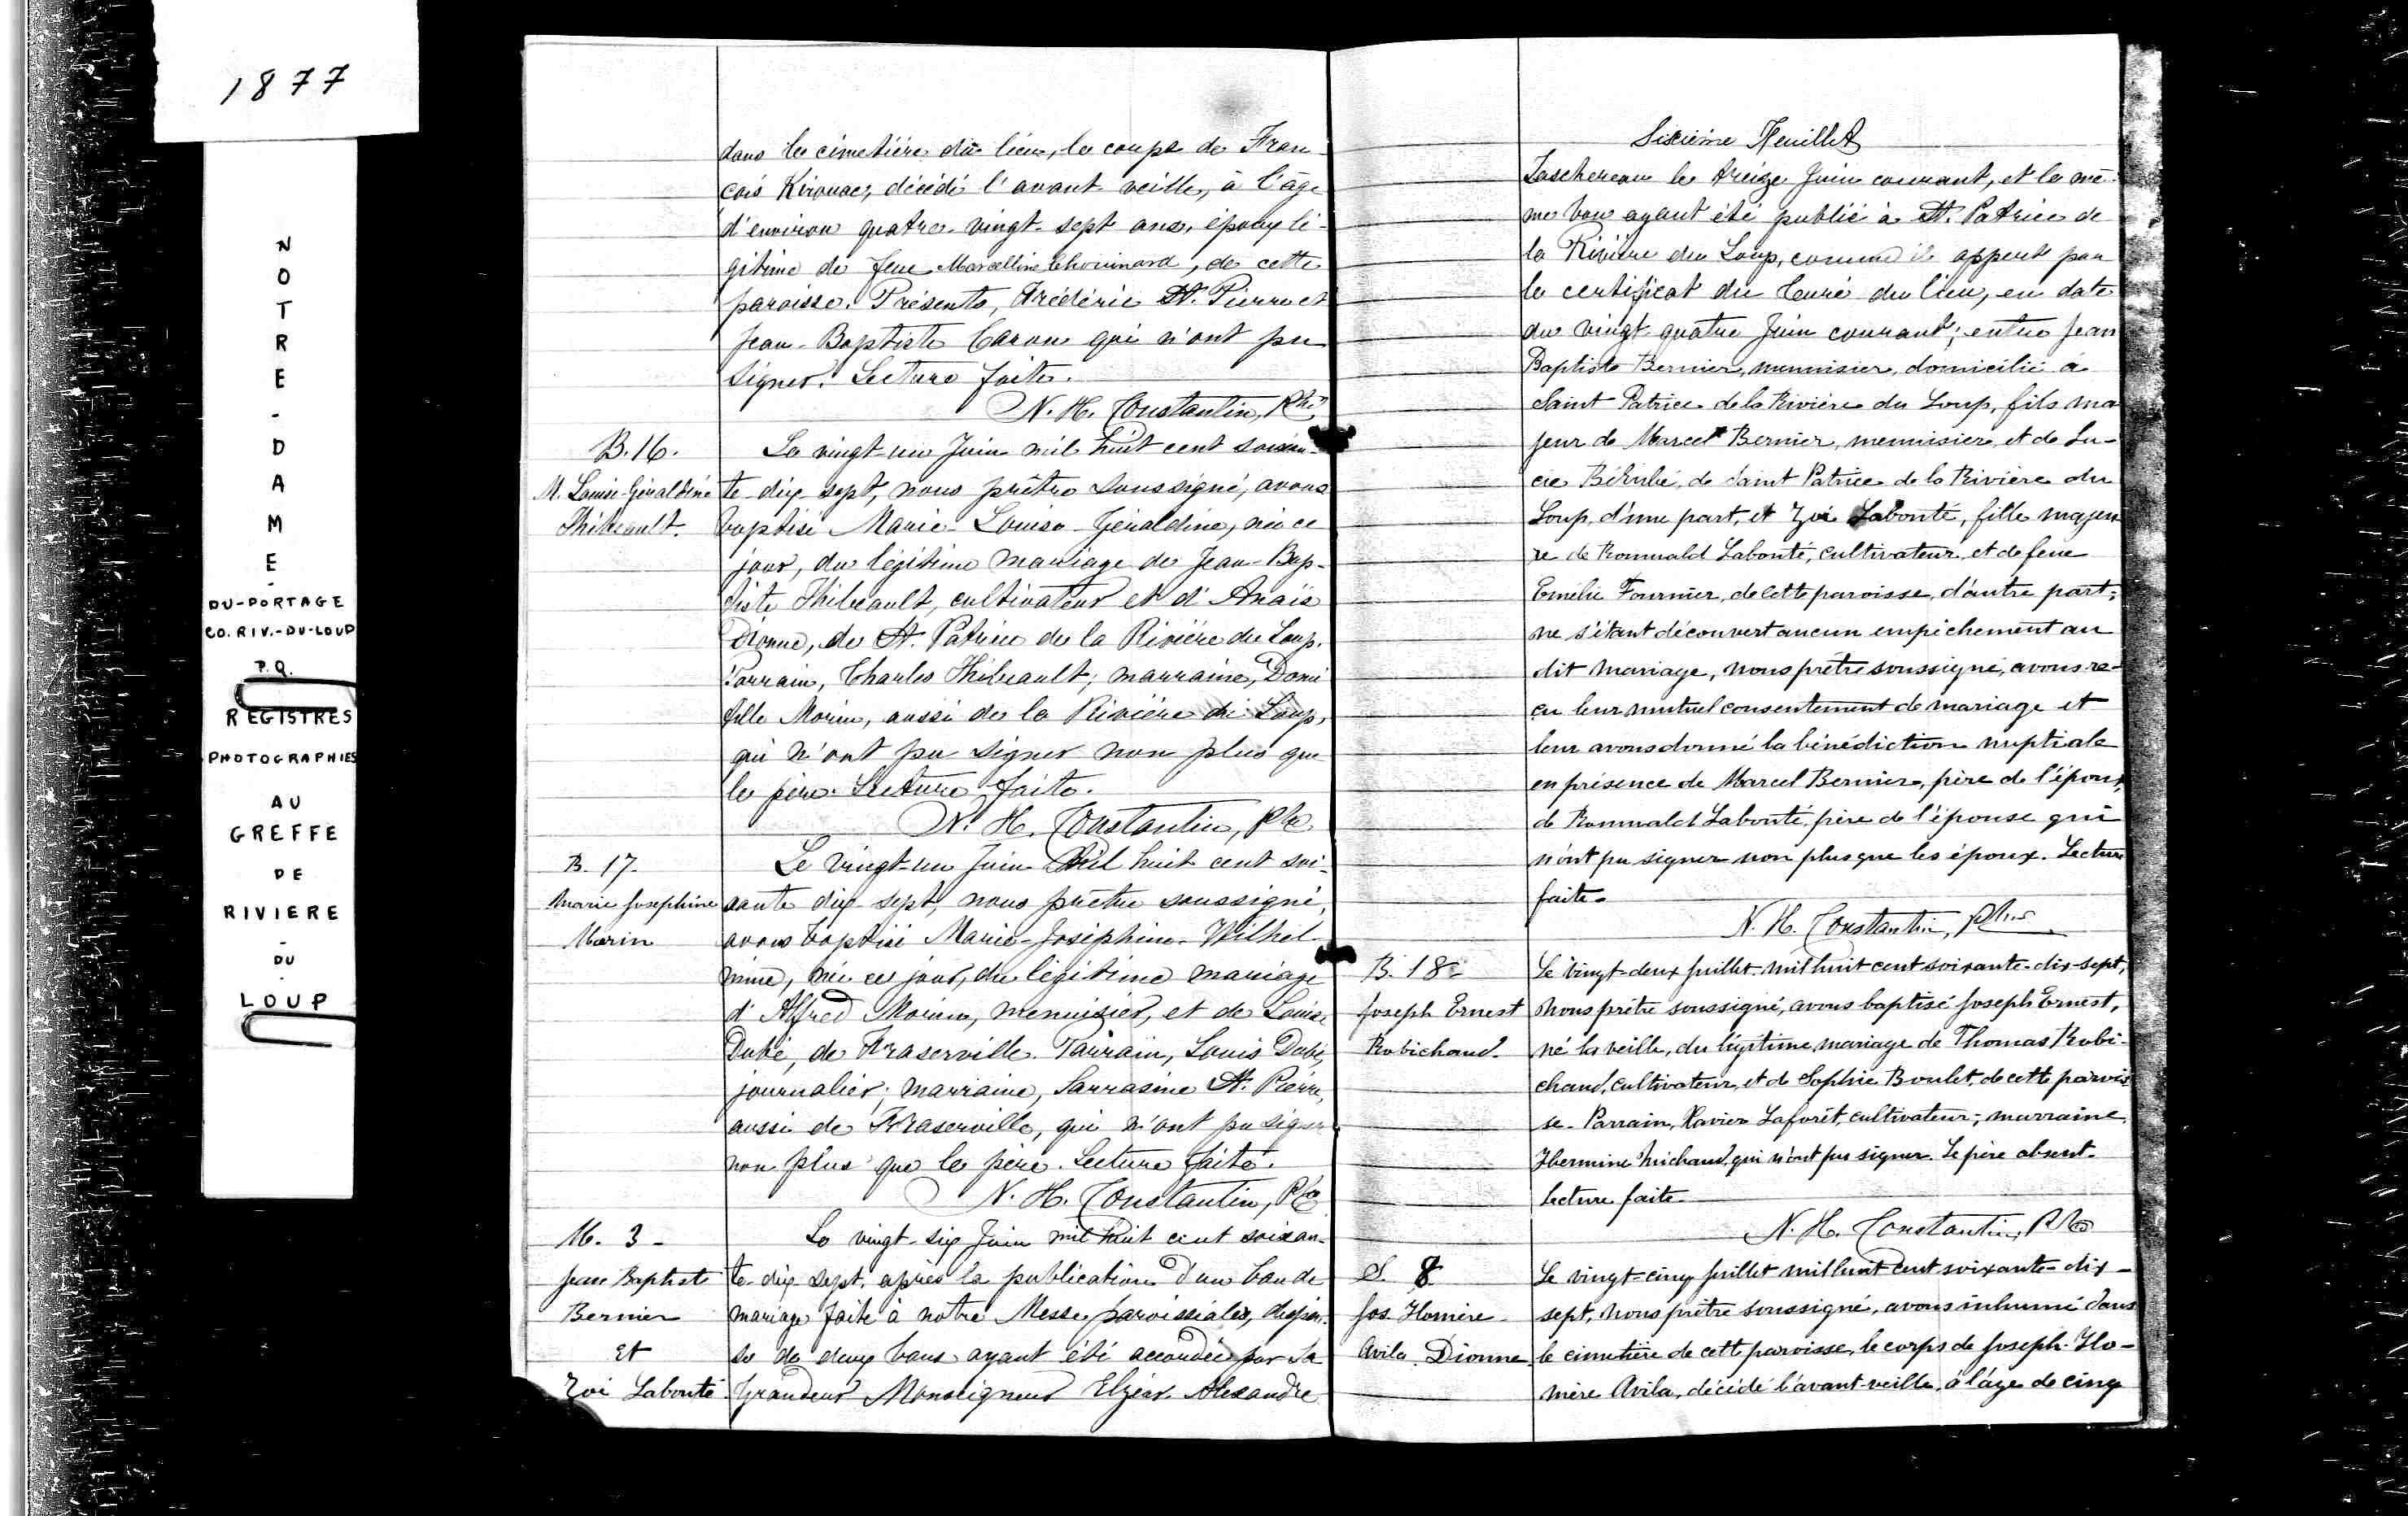 1877
NOTRE-DAME-
DU-PORTAGE
CO. RIV.-DU-LOUP
P.Q.
REGISTRES
PHOTOGRAPHIES
AU
GREFFE
DE
RIVIERE
-
DU
-
LOUP
dans le cimetière du lieu, le corps de Fran-
çois Kirouac, décédé l'avant veille, à l'âge
d'environ quatre-vingt-sept ans, époux lé-
gitime de feue Marcelline Chouinard, de cette
paroisse. Présents, Frédéric St. Pierre et
Jean-Baptiste Caron qui n'ont pu
signer. Lecture faite.
N. H. Constantin, Ptre
B. 16.
M. Louise-Géraldine
Thibeault.
Le vingt-un Juin mil huit cent soixan-
te-dix-sept, nous prêtre soussigné, avons
baptisé Marie-Louise-Géraldine, née ce
jour, du légitime mariage de Jean-Bap-
tiste Thibeault, cultivateur et d'Anaïs
Dionne, de St. Patrice de la Rivière du Loup.
Parrain, Charles Thibeault; marraine, Domi
tille Morin, aussi de la Rivière du Loup,
qui n'ont pu signer non plus que
le père. Lecture faite.
N. H. Constantin, Ptre
B. 17.
Marie Josephine
Morin
Le vingt-un Juin Mil huit cent soi-
xante dix-sept, nous prêtre soussigné,
avons baptisé Marie-Joséphine-Wilhel-
mine, née ce jour, du légitime mariage
d'Alfred Morin, menuisier, et de Louise
Dubé, de Fraserville. Parrain, Louis Dubé,
journalier; marraine, Sarrasine St. Pierre,
aussi de Fraserville, qui n'ont pu signer
non plus que le père. Lecture faite.
N. H. Constantin, Ptre
M. 3-
Jean Baptiste
Bernier
et
Zoé Labonté
Le vingt-six Juin mil huit cent soixan-
te-dix-sept, après la publication d'un ban de
mariage faite à notre Messe paroissiale, dispen-
se de deux bans ayant été accordée par Sa
Grandeur Monseigneur Elzéar Alexandre
Sixième Feuillet
Taschereau le treize Juin courant, et le mê-
me ban ayant été publié à St. Patrice de
la Rivière du Loup, comme il appert par
le certificat du Curé du lieu, en date
du vingt quatre Juin courant; entre Jean
Baptiste Bernier, menuisier, domicilié à
Saint Patrice de la Rivière du Loup, fils ma
jeur de Marcel Bernier, menuisier et de Lu-
cie Bérubé, de Saint Patrice de la Rivière du
Loup, d'une part, et Zoé Labonté, fille majeu
re de Romuald Labonté, cultivateur, et de feue
Emélie Fournier, de cette paroisse, d'autre part;
ne s'étant découvert aucun empêchement au
dit mariage, nous prêtre soussigné, avons re-
çu leur mutuel consentement de mariage et
leur avons donné la bénédiction nuptiale
en présence de Marcel Bernier, père de l'époux,
de Romuald Labonté père de l'épouse qui
n'ont pu signer non plus que les époux. Lecture
faite.
N. H. Constantin, Ptre
B. 18-
Joseph Ernest
Robichaud.
Le vingt-deux Juillet mil huit cent soixante-dix-sept,
nous prêtre soussigné, avons baptisé Joseph Ernest,
né la veille, du légitime mariage de Thomas Robi-
chaud, cultivateur, et de Sophie Boulet, de cette parois
se. Parrain, Xavier Laforêt, cultivateur; marraine,
Hermine Michaud, qui n'ont pu signer. Le père absent.
Lecture faite.
N. H. Constantin, Ptre
S. 8
Jos. Homère
Avila Dionne
Le vingt-cinq Juillet mil huit cent soixante-dix-
sept, nous prêtre soussigné, avons inhumé dans
le cimetière de cette paroisse, le corps de Joseph-Ho-
mère Avila, décédé l'avant-veille, à l'âge de cinq